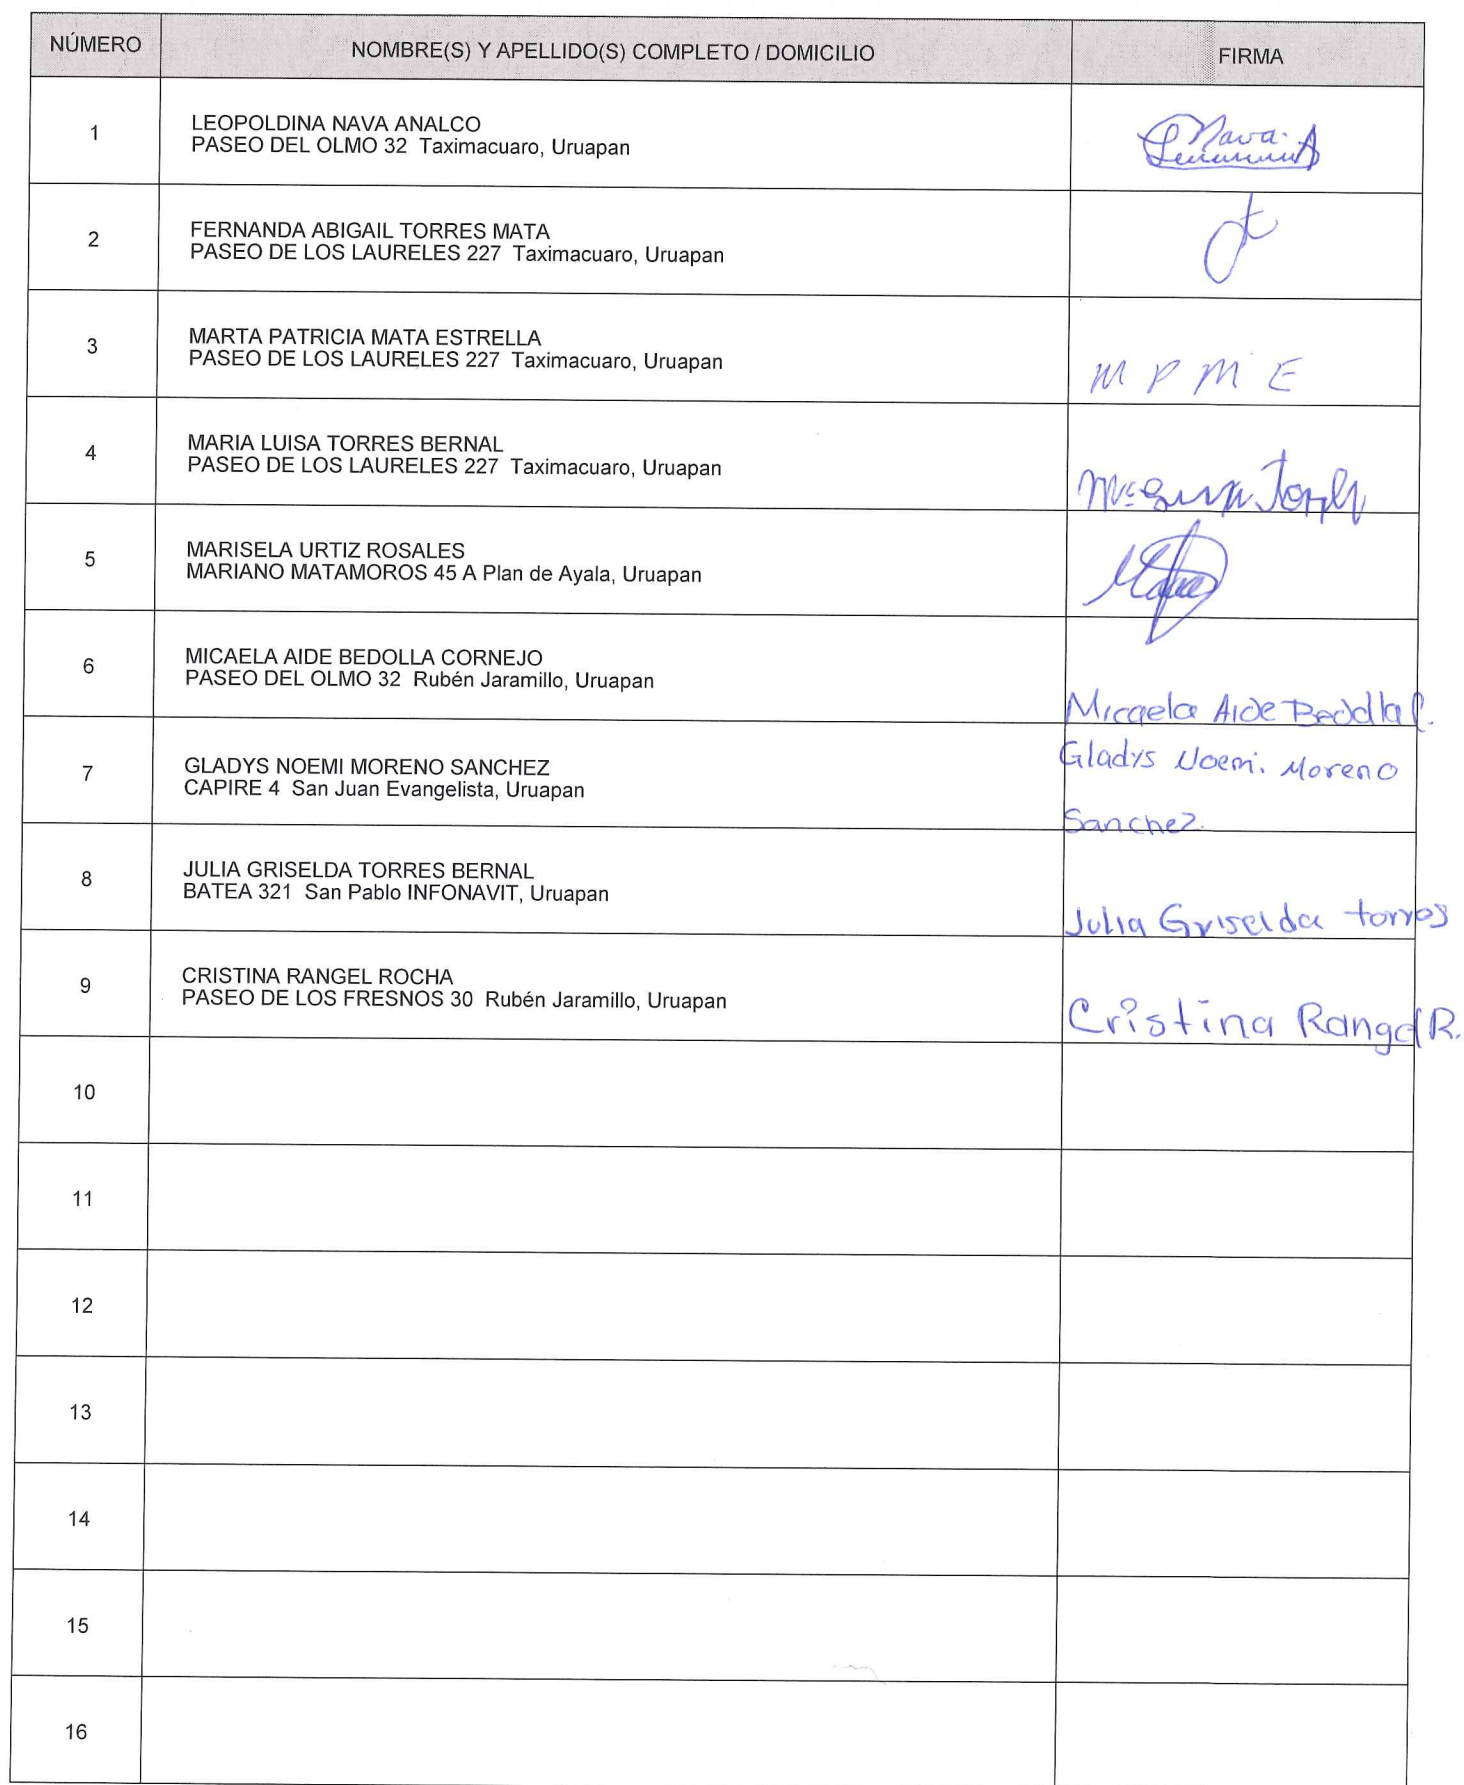 NÚMERO NOMBRE(S) Y APELLIDO(S) COMPLETO / DOMICILIO FIRMA
1 LEOPOLDINA NAVA ANALCO
PASEO DEL OLMO 32 Taximacuaro, Uruapan
Nava A
2 FERNANDA ABIGAIL TORRES MATA
PASEO DE LOS LAURELES 227 Taximacuaro, Uruapan
3 MARTA PATRICIA MATA ESTRELLA
PASEO DE LOS LAURELES 227 Taximacuaro, Uruapan
M P M E
4 MARIA LUISA TORRES BERNAL
PASEO DE LOS LAURELES 227 Taximacuaro, Uruapan
5 MARISELA URTIZ ROSALES
MARIANO MATAMOROS 45 A Plan de Ayala, Uruapan
6 MICAELA AIDE BEDOLLA CORNEJO
PASEO DEL OLMO 32 Rubén Jaramillo, Uruapan
Micaela Aide Bedolla C.
7 GLADYS NOEMI MORENO SANCHEZ
CAPIRE 4 San Juan Evangelista, Uruapan
Gladys Noemi. Moreno
Sanchez.
8 JULIA GRISELDA TORRES BERNAL
BATEA 321 San Pablo INFONAVIT, Uruapan
Julia Griselda torres
9 CRISTINA RANGEL ROCHA
PASEO DE LOS FRESNOS 30 Rubén Jaramillo, Uruapan
Cristina Rangel R.
10
11
12
13
14
15
16